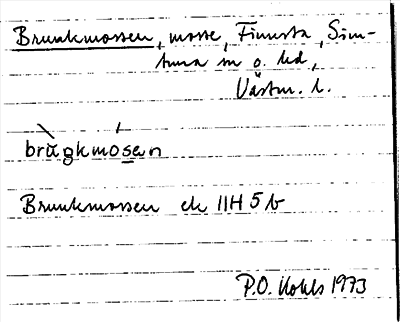 Brunkmossen, mosse, Finnsta, Sim-
tuna sn o. hd,
Västm. l.
brùŋkmósen
Brunkmossen ek 11H 5 b
P.O. 1973